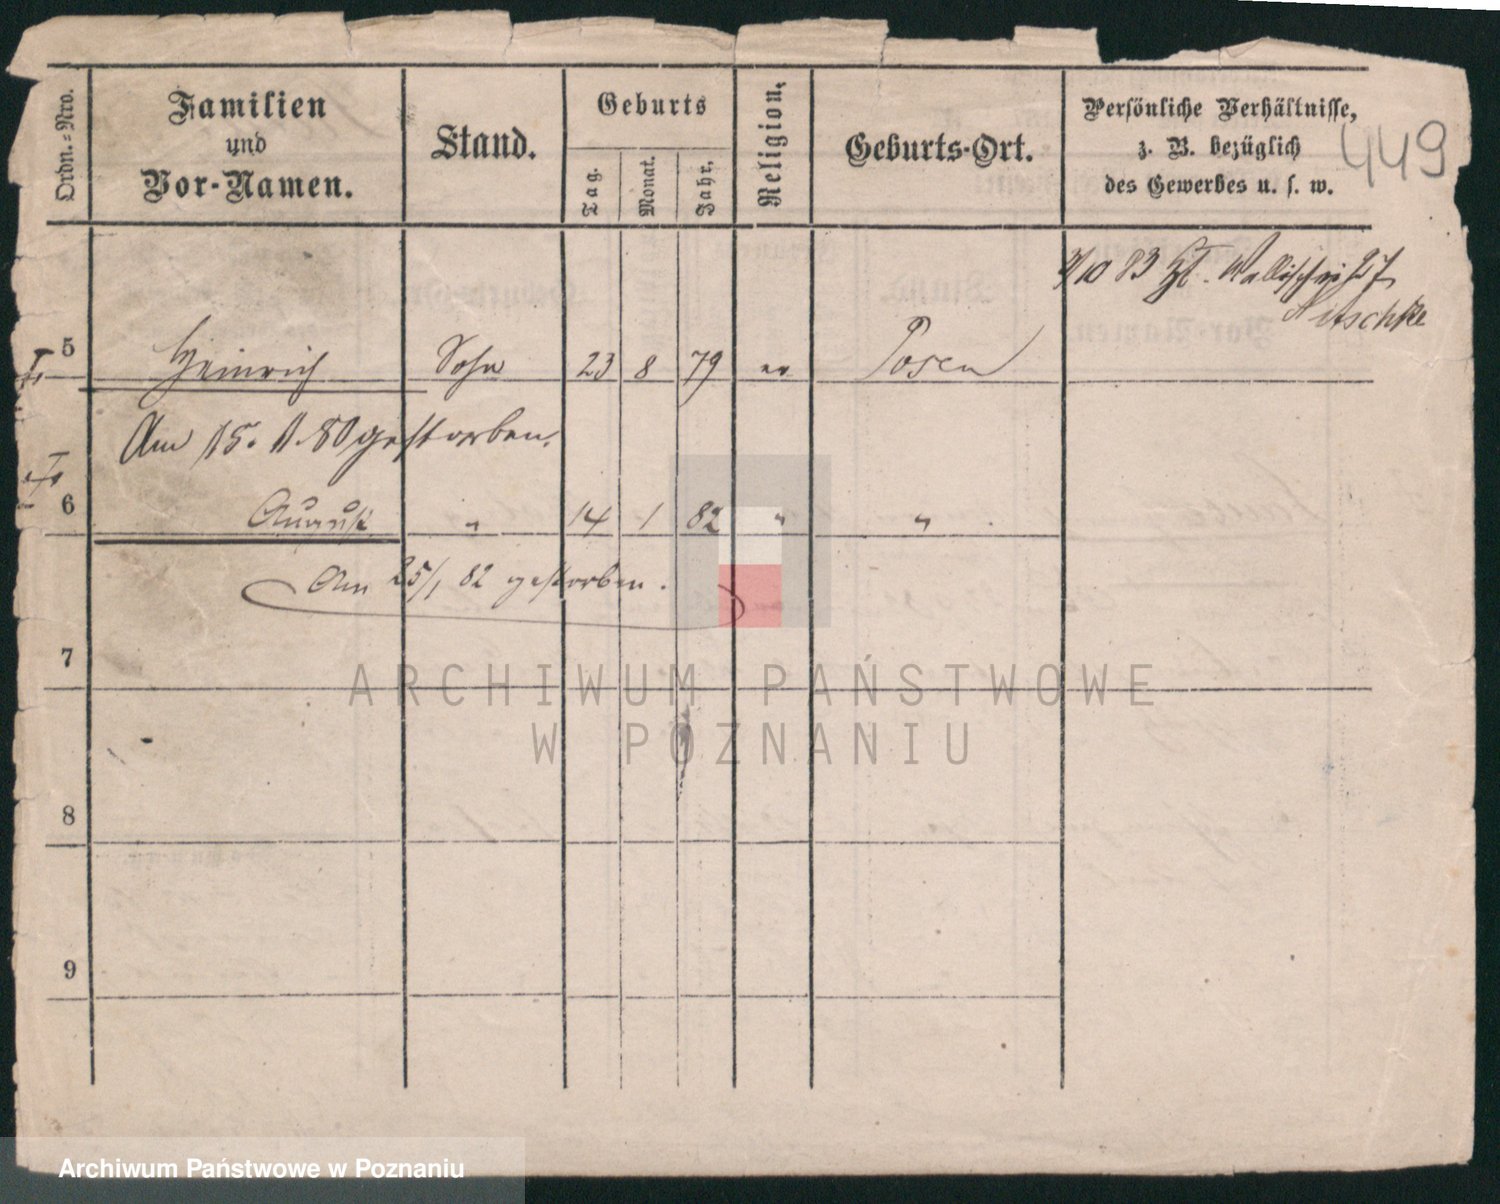 Ordn.-Nro.
Familien
und
Vor-Namen.
Stand.
Geburts
Tag.
Monat.
Jahr.
Religion.
Geburts-Ort.
Persönliche Verhältnisse,
z. B. bezüglich
des Gewerbes u. s. w.
449
10 83 Wallischei 27
Nitschke
5 Heinrich Sohn 23 8 79 ev Posen
Am 15. 11. 80 gestorben.
6 August " 14 1 82 " "
Am 25/1 82 gestorben.
7
8
9
ARCHIWUM PAŃSTWOWE
W POZNANIU
Archiwum Państwowe w Poznaniu